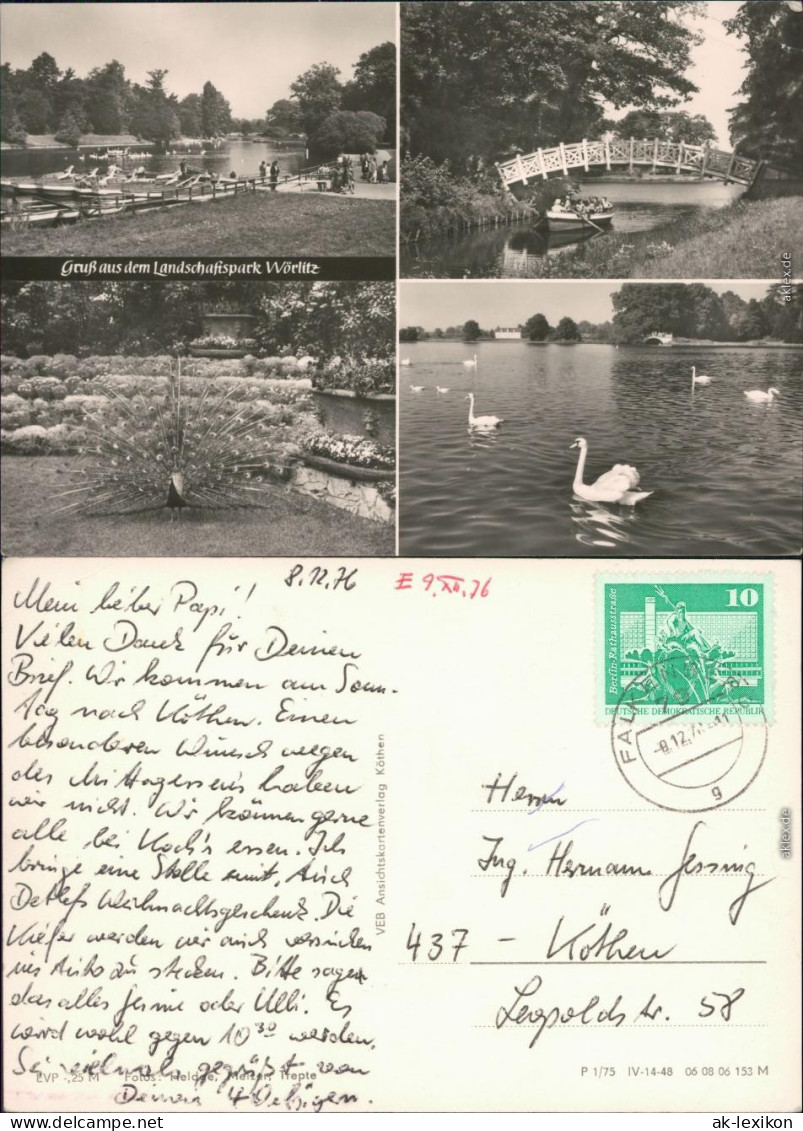 Gruß aus dem Landschaftspark Wörlitz
aklex.de
8.12.76
E 9.XII.76
Mein lieber Papi!
Vielen Dank für Deinen
Brief. Wir kommen am Sonn-
tag nach Köthen. Einen
besonderen Wunsch wegen
des Mittagessens haben
wir nicht. Wir können gerne
alle bei Koch's essen. Ich
bringe eine Stolle mit. Auch
Detlefs Weihnachtsgeschenk. Die
Kiefer werden wir auch versuchen
ins Auto zu stecken. Bitte sage
das alles Jennie oder Ulli. Es
wird wohl gegen 10 30 werden.
Sei vielmals gegrüßt von
Deinen 4
10
Berlin-Rathausstraße
DEUTSCHE DEMOKRATISCHE REPUBLIK
FALKEN
-8.12.76-11
g
VEB Ansichtskartenverlag Köthen
Herrn
Ing. Hermann Jessing
437 - Köthen
Leopoldstr. 58
EVP -,25 M Fotos:
P 1/75 IV-14-48 06 08 06 153 M
aklex.de
ak-lexikon
www.delcampe.net